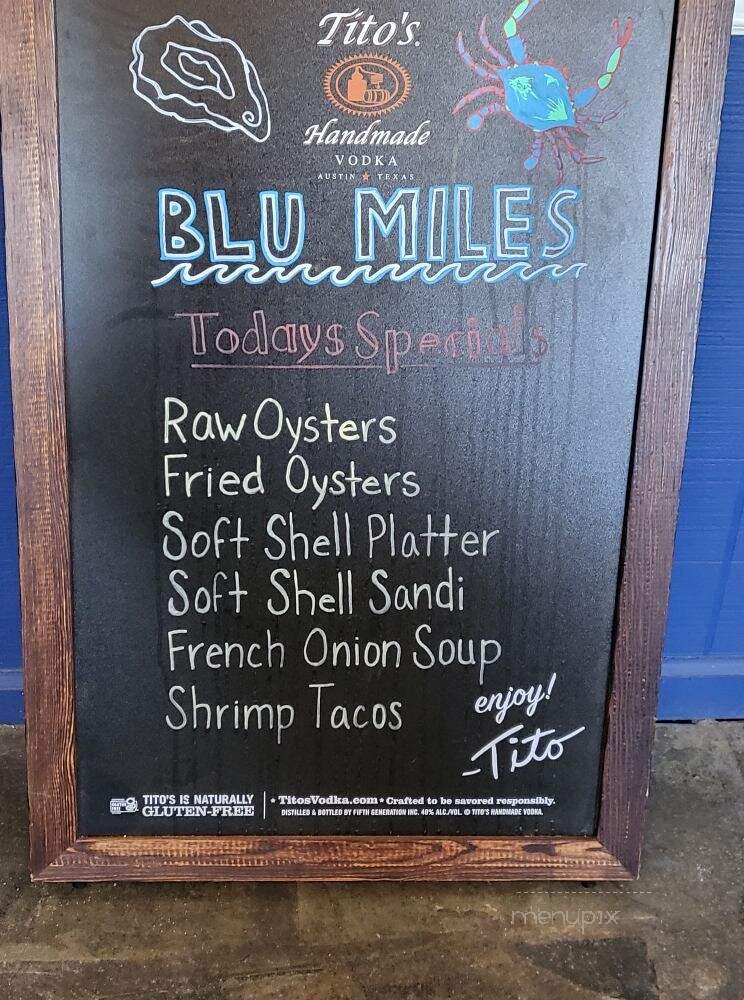 Tito's.
Handmade
VODKA
AUSTIN ★ TEXAS
BLU MILES
Todays Specials
Raw Oysters
Fried Oysters
Soft Shell Platter
Soft Shell Sandi
French Onion Soup
Shrimp Tacos
enjoy!
-Tito
TITO'S IS NATURALLY
GLUTEN-FREE
★ TitosVodka.com ★ Crafted to be savored responsibly.
DISTILLED & BOTTLED BY FIFTH GENERATION INC. 40% ALC./VOL. © TITO'S HANDMADE VODKA.
menupix